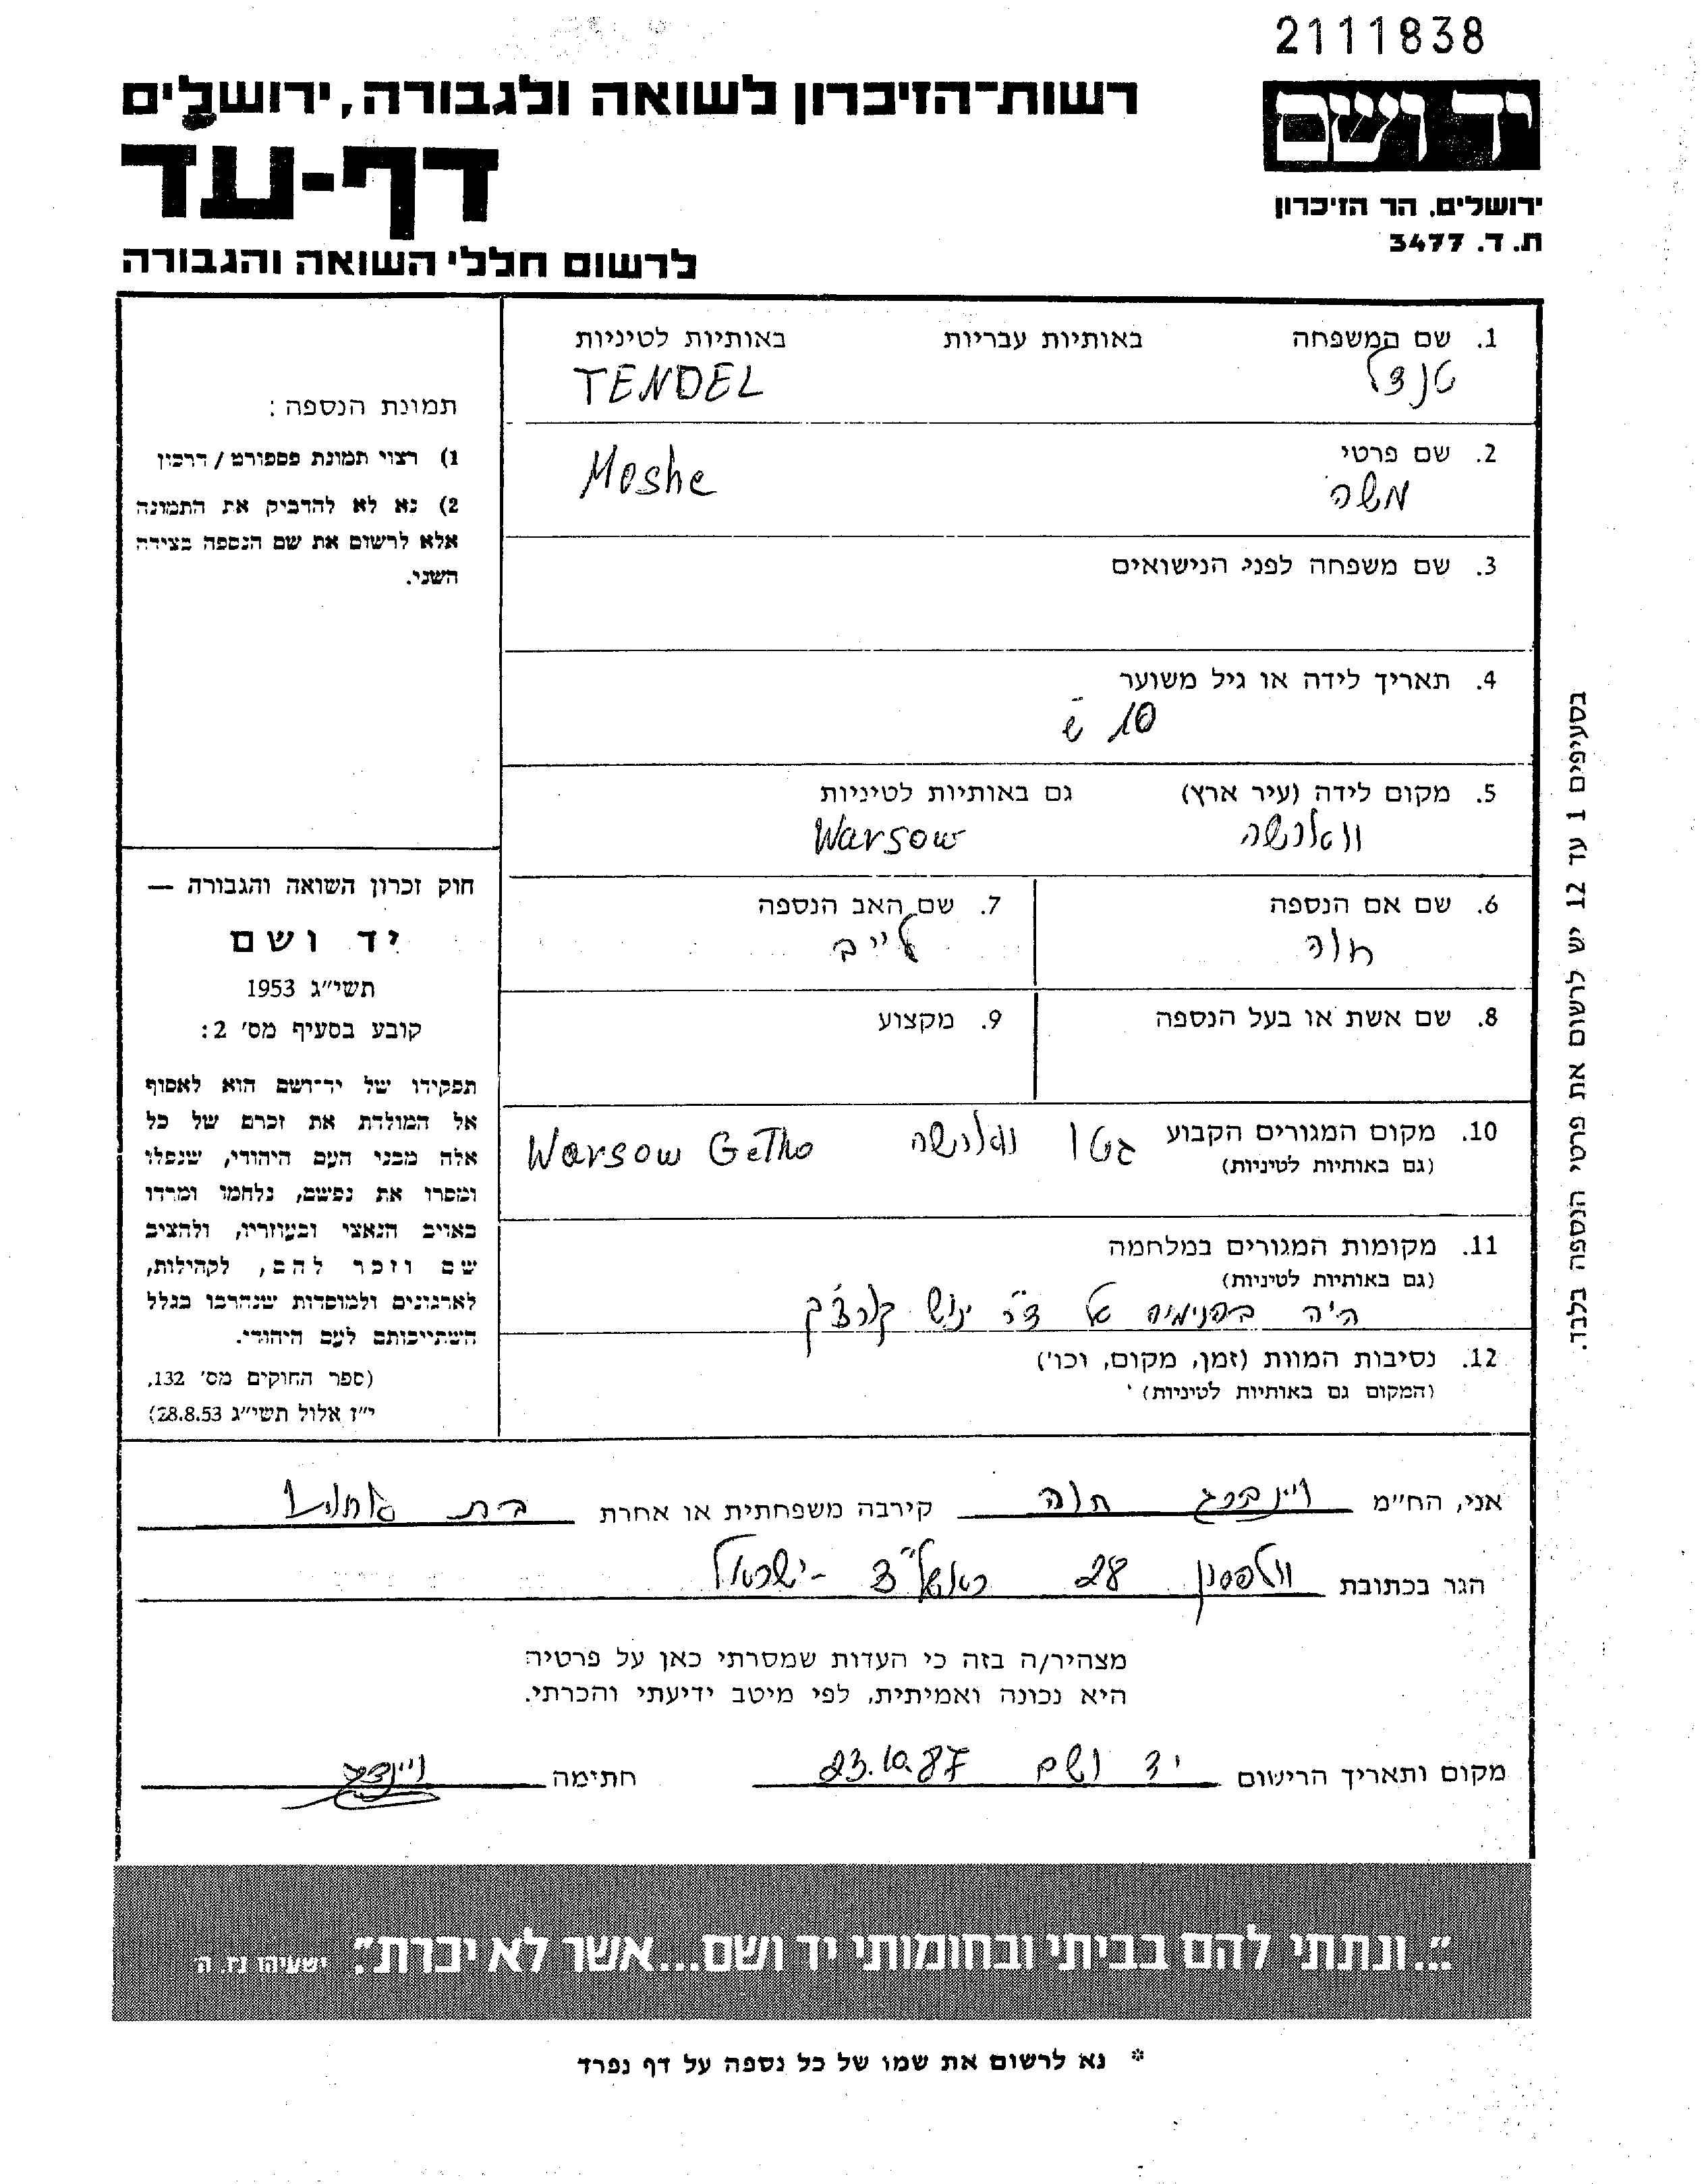 2111838
יד ושם
רשות־הזיכרון לשואה ולגבורה, ירושלים
דף-עד
ירושלים, הר הזיכרון
ת. ד. 3477
לרשום חללי השואה והגבורה
1. שם המשפחה באותיות עבריות באותיות לטיניות
טנדל TENDEL
2. שם פרטי
משה Moshe
3. שם משפחה לפני הנישואים
4. תאריך לידה או גיל משוער
10 ש
5. מקום לידה (עיר ארץ) גם באותיות לטיניות
ווארשה Warsow
6. שם אם הנספה 7. שם האב הנספה
חוה לייב
8. שם אשת או בעל הנספה 9. מקצוע
10. מקום המגורים הקבוע גטו ווארשה Warsow Getho
(גם באותיות לטיניות)
11. מקומות המגורים במלחמה
(גם באותיות לטיניות)
היה בפנימיה של ד"ר ינוש קורצ'ק
12. נסיבות המוות (זמן, מקום, וכו')
(המקום גם באותיות לטיניות)
תמונת הנספה:
1) רצוי תמונת פספורט / דרכון
2) נא לא להדביק את התמונה
אלא לרשום את שם הנספה בצידה
השני.
חוק זכרון השואה והגבורה —
יד ושם
תשי"ג 1953
קובע בסעיף מס' 2:
תפקידו של יד־ושם הוא לאסוף
אל המולדת את זכרם של כל
אלה מבני העם היהודי, שנפלו
ומסרו את נפשם, נלחמו ומרדו
באויב הנאצי ובעוזריו, ולהציב
שם וזכר להם, לקהילות,
לארגונים ולמוסדות שנחרבו בגלל
השתייכותם לעם היהודי.
(ספר החוקים מס' 132,
י"ז אלול תשי"ג 28.8.53)
בסעיפים 1 עד 12 יש לרשום את פרטי הנספה בלבד.
אני, הח"מ ויינברג חוה קירבה משפחתית או אחרת בת
הגר בכתובת וולפסון 28 ראשל"צ - ישראל
מצהיר/ה בזה כי העדות שמסרתי כאן על פרטיה
היא נכונה ואמיתית, לפי מיטב ידיעתי והכרתי.
מקום ותאריך הרישום יד ושם 23.10.87 חתימה
"...ונתתי להם בביתי ובחומותי יד ושם...אשר לא יכרת". ישעיהו נו, ה
* נא לרשום את שמו של כל נספה על דף נפרד